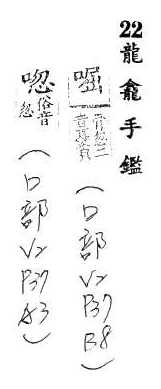 22龍龕手鑑
㗀(口部V2P37B8)
唿俗音忽(口部V2P37A3)